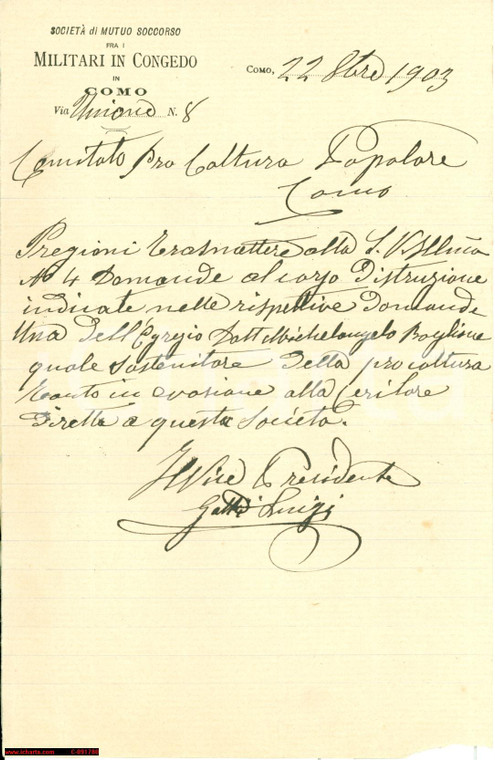 SOCIETÀ di MUTUO SOCCORSO
FRA I
MILITARI IN CONGEDO
IN
COMO
Via Unione N. 8
Como, 22 8bre 1903
Comitato pro Coltura Popolare
Como
Pregiomi Trasmettere alla S. V. Illma
No 4 Domande al corso D'istruzione
indicate nelle rispettive Domande
Una dell'Egregio Dott Michelangelo
quale Sostenitore Della pro coltura
Tanto in evasione alla
Diretta a questa Società.
Il Vice Presidente
Gatti Luigi
www.icharta.com C-091786